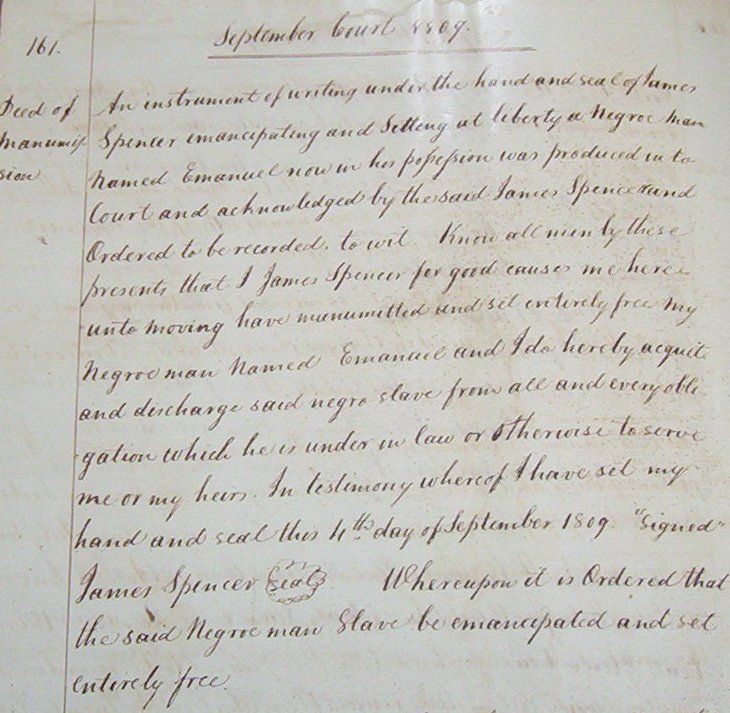 161.
September Court 1809.
Deed of
manumis
sion
An instrument of writing under the hand and seal of James
Spencer emancipating and Setting at liberty a Negroe man
Named Emanuel now in his possession was produced in to
Court and acknowledged by the said James Spencer and
Ordered to be recorded. to wit. Know all men by these
presents that I James Spencer for good causes me here
unto moving have manumitted and set entirely free My
Negroe man Named Emanuel and I do hereby acquit
and discharge said negro slave from all and every obli
gation which he is under in law or otherwise to serve
me or my heirs. In testimony whereof I have set my
hand and seal this 4th day of September 1809 "Signed"
James Spencer Seal Whereupon it is Ordered that
the said Negroe man Slave be emancipated and set
entirely free.